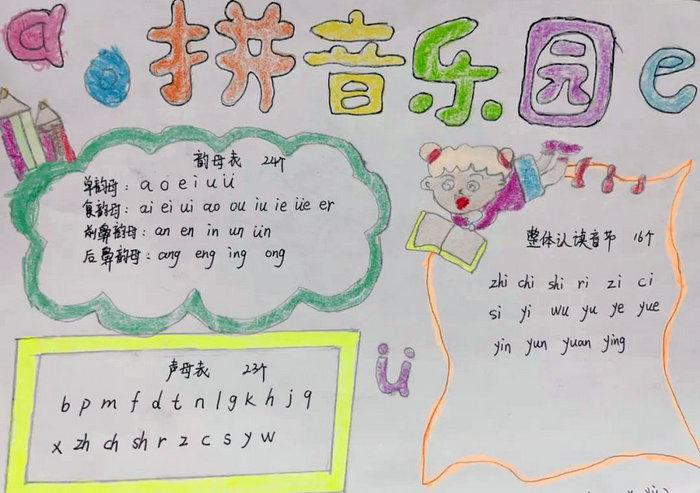 a o 拼音乐园 e
韵母表 24个
单韵母: a o e i u ü
复韵母: ai ei ui ao ou iu ie üe er
前鼻韵母: an en in un ün
后鼻韵母: ang eng ing ong
整体认读音节 16个
zhi chi shi ri zi ci
si yi wu yu ye yue
yin yun yuan ying
声母表 23个
b p m f d t n l g k h j q
x zh ch sh r z c s y w
ü